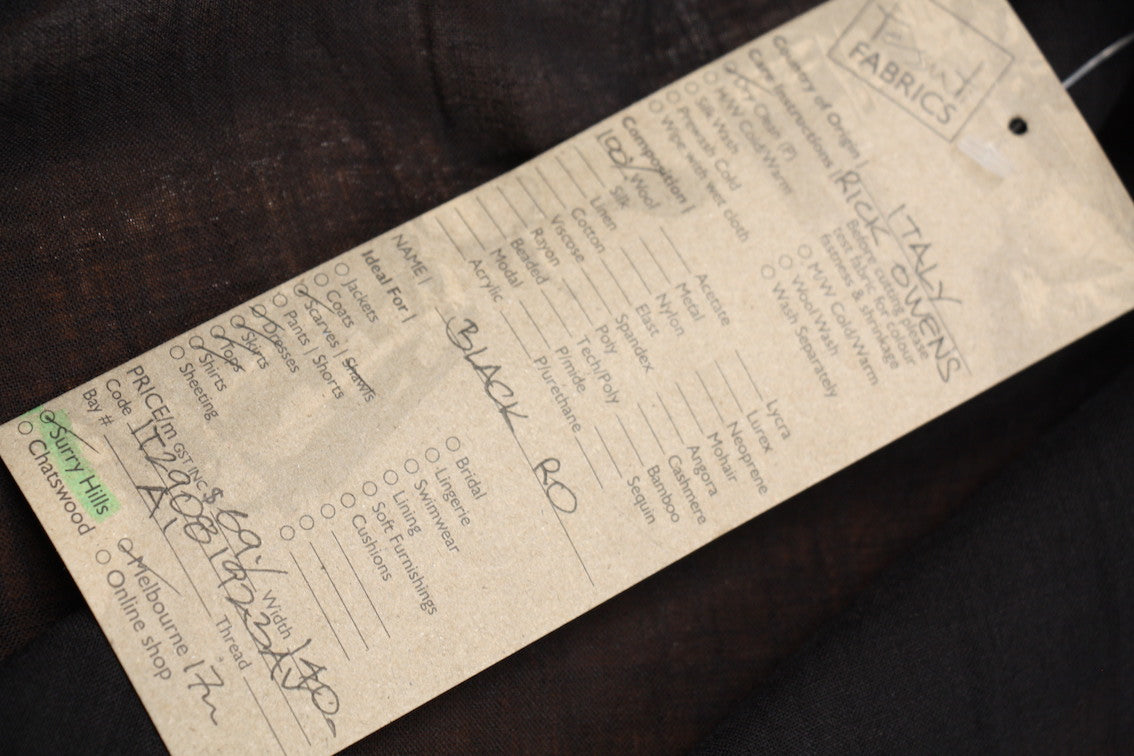 FABRICS
Country of Origin | ITALY
RICK OWENS
Care Instructions |
Before cutting please
test fabric for colour
fastness & shrinkage
Dry Clean (P)
H/W Cold/Warm
Silk Wash
Prewash Cold
Wipe with wet cloth
M/W Cold/Warm
Wool Wash
Wash Separately
Composition |
100% Wool
Silk
Linen
Cotton
Viscose
Rayon
Beaded
Modal
Acrylic
Acetate
Metal
Nylon
Elast
Spandex
Poly
Tech/Poly
P/mide
P/urethane
Lycra
Lurex
Neoprene
Mohair
Angora
Cashmere
Bamboo
Sequin
NAME | BLACK RO
Ideal For |
Jackets
Coats
Scarves | Shawls
Pants | Shorts
Dresses
Skirts
Tops
Shirts
Sheeting
Bridal
Lingerie
Swimwear
Lining
Soft Furnishings
Cushions
PRICE/m GST INC $ 69 Width 140
Code
Bay # A. Thread
Surry Hills
Chatswood
Melbourne 17m
Online shop